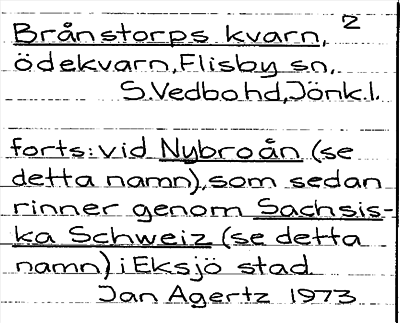 2
Brånstorps kvarn,
ödekvarn, Flisby sn,
S.Vedbohd, Jönk.l.
forts: vid Nybroån (se
detta namn), som sedan
rinner genom Sachsis-
ka Schweiz (se detta
namn) i Eksjö stad.
Jan Agertz 1973